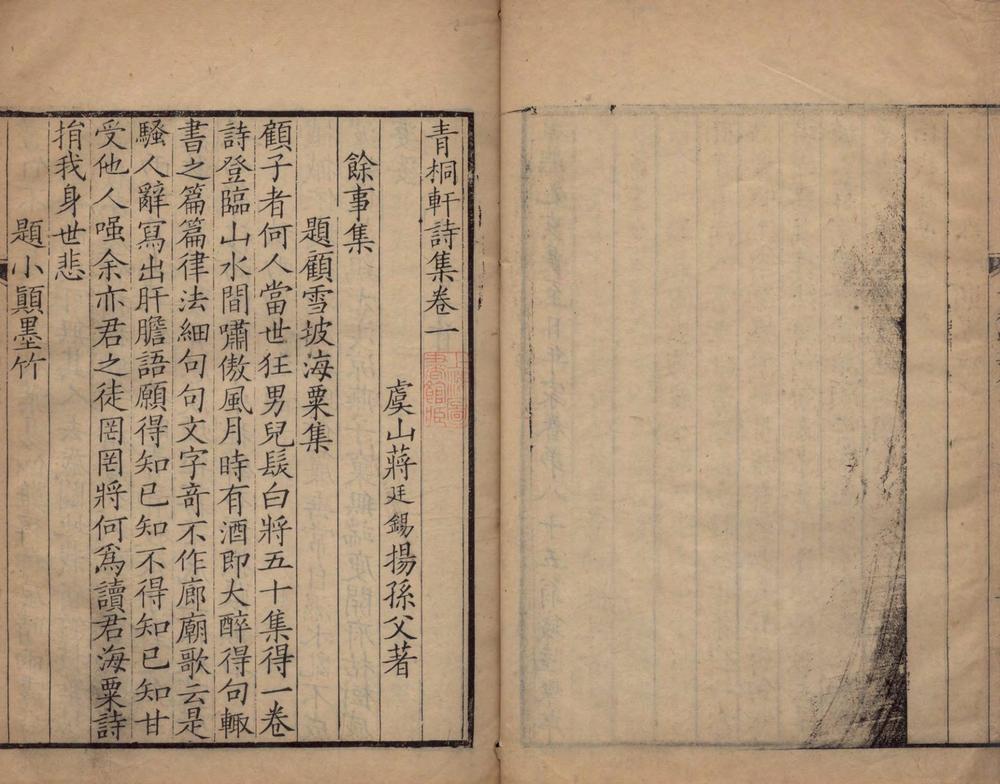 青桐軒詩集卷一
虞山蔣廷錫揚孫父著
餘事集
題顧雪坡海粟集
顧子者何人當世狂男兒髮白將五十集得一卷
詩登臨山水間嘯傲風月時有酒即大醉得句輙
書之篇篇律法細句句文字竒不作廊廟歌云是
騷人辭冩出肝膽語願得知已知不得知已知甘
受他人嗤余亦君之徒罔罔將何爲讀君海粟詩
揹我身世悲
題小顛墨竹